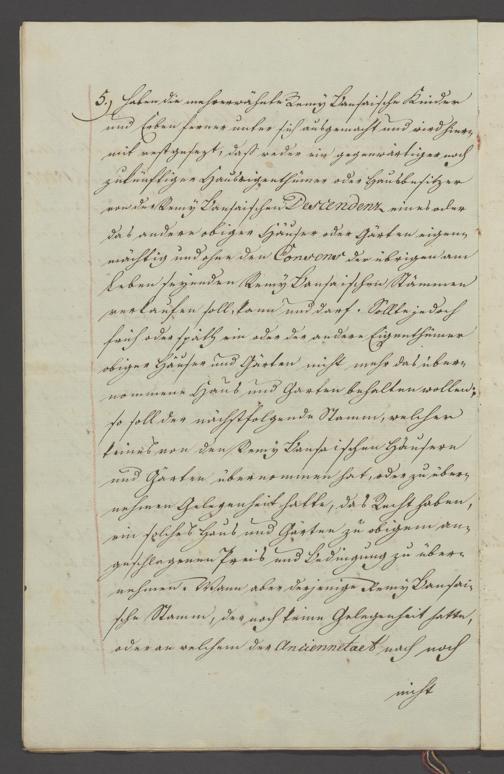 5.) Haben die mehrerwähnte Remÿ Bansaische Kinder
und Erben ferner unter sich ausgemacht und wird hier-
mit vestgesezt, daß weder ein gegenwärtiger noch
zukünftiger Hauseigenthümer oder Hausbesitzer
von der Remÿ Bansaischen Descendenz eines oder
das andere obiger Häuser oder Gärten eigen-
mächtig und ohne den Consens der übrigen am
Leben seÿenden Remÿ Bansaischen Stämmen
verkaufen soll, kann und darf. Sollte jedoch
früh oder späth ein oder der andere Eigenthümer
obiger Häuser und Gärten nicht mehr das über-
nommene Haus und Garten behalten wollen;
so soll der nächstfolgende Stamm, welcher
keines von den Remÿ Bansaischen Häusern
und Gärten übernommen hat, oder zu über-
nehmen Gelegenheit hatte, das Recht haben,
ein solches Haus und Gärten zu obigem an-
geschlagenen Preis und Bedingung zu über-
nehmen. Wann aber derjenige Remÿ Bansai-
sche Stamm, der noch keine Gelegenheit hatte,
oder an welchem der Anciennetaet nach noch
nicht